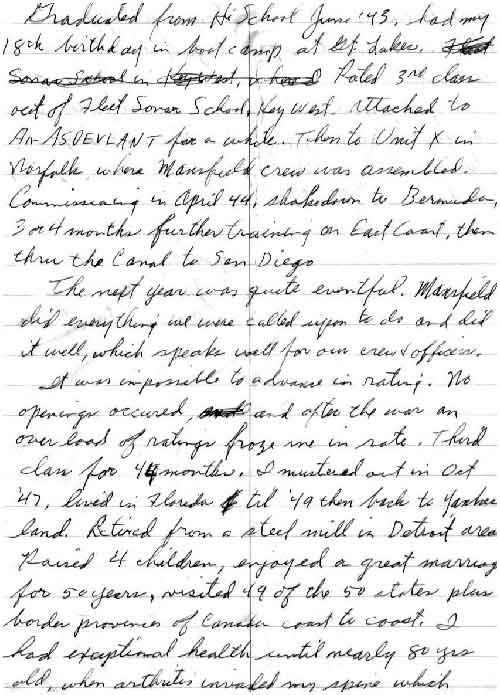 Graduated from Hi School June '43, had my
18th birthday in boot camp at Gt Lakes. Fleet
Sonar School in Key West, Rated 3rd class
out of Fleet Sonar School, Key West. Attached to
An ASDEVLANT for a while. Then to Unit X in
Norfolk where Mansfield crew was assembled.
Commissioning in April 44, shakedown to Bermuda,
3 or 4 months further training on East Coast, then
thru the Canal to San Diego
The next year was quite eventful. Mansfield
did everything we were called upon to do and did
it well, which speaks well for our crew & officers.
It was impossible to advance in rating. No
openings occured, and and after the war an
over load of ratings froze me in rate. Third
class for 44 months. I mustered out in Oct
'47, lived in Florida til '49 then back to Yankee
land. Retired from a steel mill in Detroit area
Raised 4 children, enjoyed a great marriag
for 50 years, visited 49 of the 50 states plus
border provinces of Canada coast to coast. I
had exceptional health until nearly 80 yrs
old, when arthritis invaded my spine which